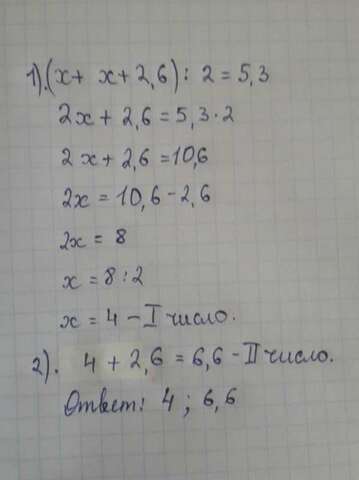 1).(x + x + 2,6) : 2 = 5,3
2x + 2,6 = 5,3 · 2
2x + 2,6 = 10,6
2x = 10,6 - 2,6
2x = 8
x = 8 : 2
x = 4 - I число.
2). 4 + 2,6 = 6,6 - II число.
Ответ: 4 ; 6,6